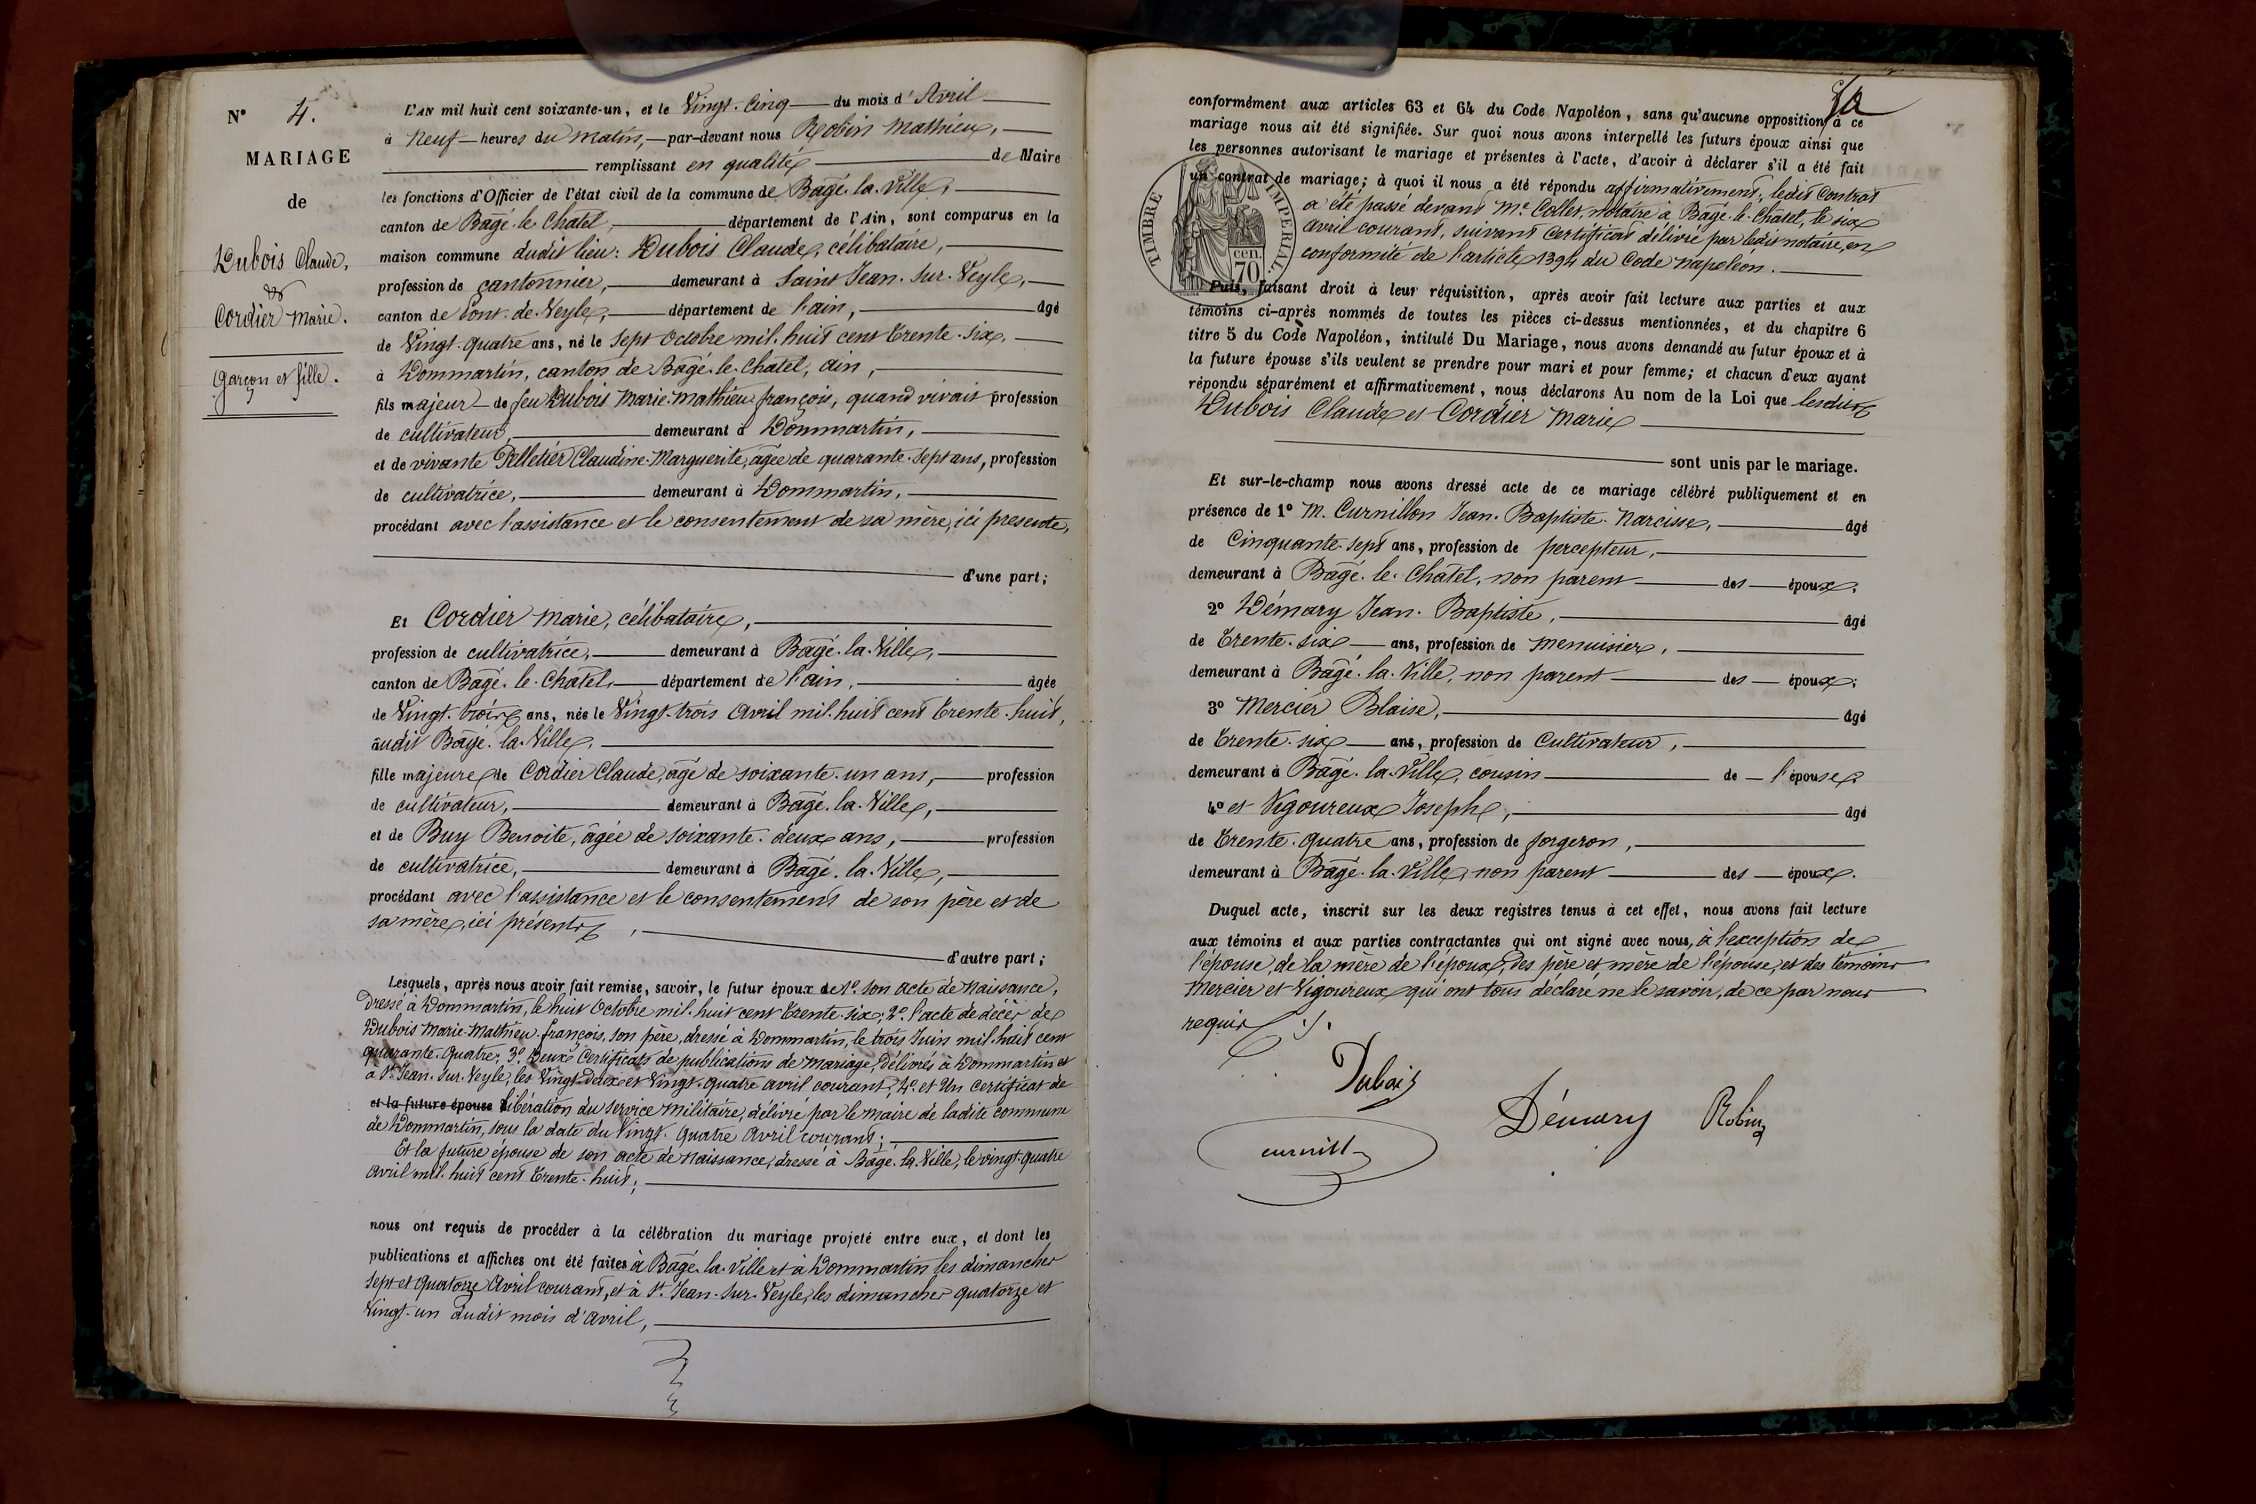 N° 4.
MARIAGE
de
Dubois Claude,
&
Cordier Marie.
Garçon et fille.
L'AN mil huit cent soixante-un, et le Vingt-Cinq du mois d'Avril
à Neuf heures du Matin, par-devant nous Robin Mathieu,
remplissant en qualité de Maire
les fonctions d'Officier de l'état civil de la commune de Bâgé-la-Ville,
canton de Bâgé-le-Chatel, département de l'Ain, sont comparus en la
maison commune dudit lieu : Dubois Claude, célibataire,
profession de cantonnier, demeurant à Saint Jean-Sur-Veyle,
canton de Pont-de-Veyle, département de l'ain, âgé
de Vingt-quatre ans, né le sept Octobre mil-huit cent trente-six,
à Dommartin, canton de Bâgé-le-Chatel, ain,
fils majeur de feu Dubois Marie-Mathieu-françois, quand vivait profession
de cultivateur, demeurant à Dommartin,
et de vivante Pelletier Claudine-Marguerite, âgée de quarante-sept ans, profession
de cultivatrice, demeurant à Dommartin,
procédant avec l'assistance et le consentement de sa mère, ici présente,
d'une part;
Et Cordier Marie, célibataire,
profession de cultivatrice, demeurant à Bâgé-la-Ville,
canton de Bâgé-le-Chatel, département de l'ain, âgée
de Vingt-trois ans, née le Vingt-trois Avril mil-huit cent trente-huit,
audit Bâgé-la-Ville,
fille majeure de Cordier Claude, âgé de soixante-un ans, profession
de cultivateur, demeurant à Bâgé-la-Ville,
et de Buy Benoite, âgée de soixante-deux ans, profession
de cultivatrice, demeurant à Bâgé-la-Ville,
procédant avec l'assistance et le consentement de son père et de
sa mère, ici présents,
d'autre part;
Lesquels, après nous avoir fait remise, savoir, le futur époux de 1° son acte de Naissance,
dressé à Dommartin, le huit Octobre mil-huit cent trente-six; 2° l'acte de décès de
Dubois Marie-Mathieu-françois, son père, dressé à Dommartin, le trois Juin mil-huit cent
quarante-quatre; 3° Deux Certificats de publications de mariage, délivrés à Dommartin et
à St Jean-sur-Veyle, les Vingt-Deux et Vingt-quatre avril courant; 4° et Un certificat de
et la future épouse libération du service militaire, délivré par le maire de ladite commune
de Dommartin, sous la date du Vingt-quatre Avril courant;
Et la future épouse de son acte de naissance, dressé à Bâgé-la-Ville, le vingt-quatre
avril mil-huit cent trente-huit;
nous ont requis de procéder à la célébration du mariage projeté entre eux, et dont les
publications et affiches ont été faites à Bâgé-la-Ville et à Dommartin les dimanches
sept et quatorze Avril courant, et à St Jean-Sur-Veyle, les dimanches quatorze et
Vingt-un dudit mois d'avril,
conformément aux articles 63 et 64 du Code Napoléon, sans qu'aucune opposition à ce
mariage nous ait été signifiée. Sur quoi nous avons interpellé les futurs époux ainsi que
les personnes autorisant le mariage et présentes à l'acte, d'avoir à déclarer s'il a été fait
un contrat de mariage; à quoi il nous a été répondu affirmativement; ledit Contrat
a été passé devant Me Collet, notaire à Bâgé-le-Chatel, le six
avril courant, suivant Certificat délivré par ledit notaire, en
conformité de l'article 1394 du Code napoléon.
TIMBRE IMPERIAL
70 cen.
Puis, faisant droit à leur réquisition, après avoir fait lecture aux parties et aux
témoins ci-après nommés de toutes les pièces ci-dessus mentionnées, et du chapitre 6
titre 5 du Code Napoléon, intitulé Du Mariage, nous avons demandé au futur époux et à
la future épouse s'ils veulent se prendre pour mari et pour femme; et chacun d'eux ayant
répondu séparément et affirmativement, nous déclarons Au nom de la Loi que lesdits
Dubois Claude et Cordier Marie
sont unis par le mariage.
Et sur-le-champ nous avons dressé acte de ce mariage célébré publiquement et en
présence de 1° M. Curnillon Jean-Baptiste-Narcisse, âgé
de Cinquante-sept ans, profession de percepteur,
demeurant à Bâgé-le-Chatel, non parent des époux;
2° Démary Jean-Baptiste, âgé
de trente-six ans, profession de menuisier,
demeurant à Bâgé-la-Ville, non parent des époux;
3° Mercier Blaise, âgé
de trente-six ans, profession de Cultivateur,
demeurant à Bâgé-la-Ville, cousin de l'épouse;
4° et Vigoureux Joseph, âgé
de trente-quatre ans, profession de forgeron,
demeurant à Bâgé-la-Ville, non parent des époux.
Duquel acte, inscrit sur les deux registres tenus à cet effet, nous avons fait lecture
aux témoins et aux parties contractantes qui ont signé avec nous, à l'exception de
l'épouse, de la mère de l'époux, des père et mère de l'épouse, et des témoins
Mercier et Vigoureux qui ont tous déclaré ne le savoir, de ce par nous
requis ./.
Dubois
Démary Robin